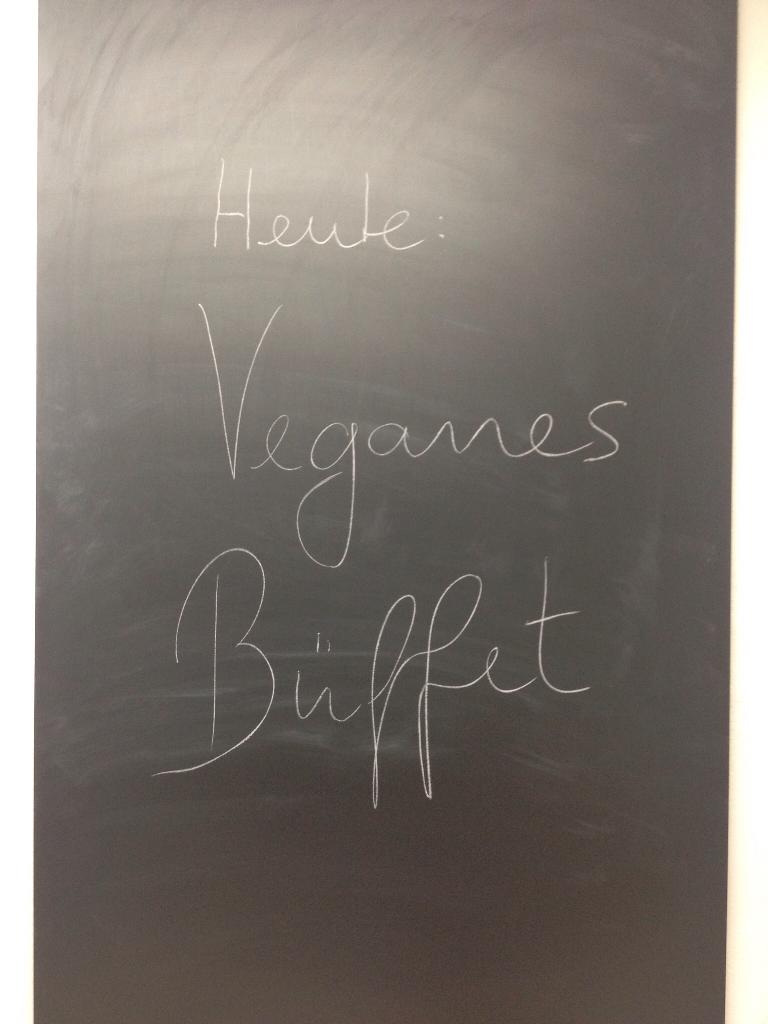 Heute:
Veganes
Büffet